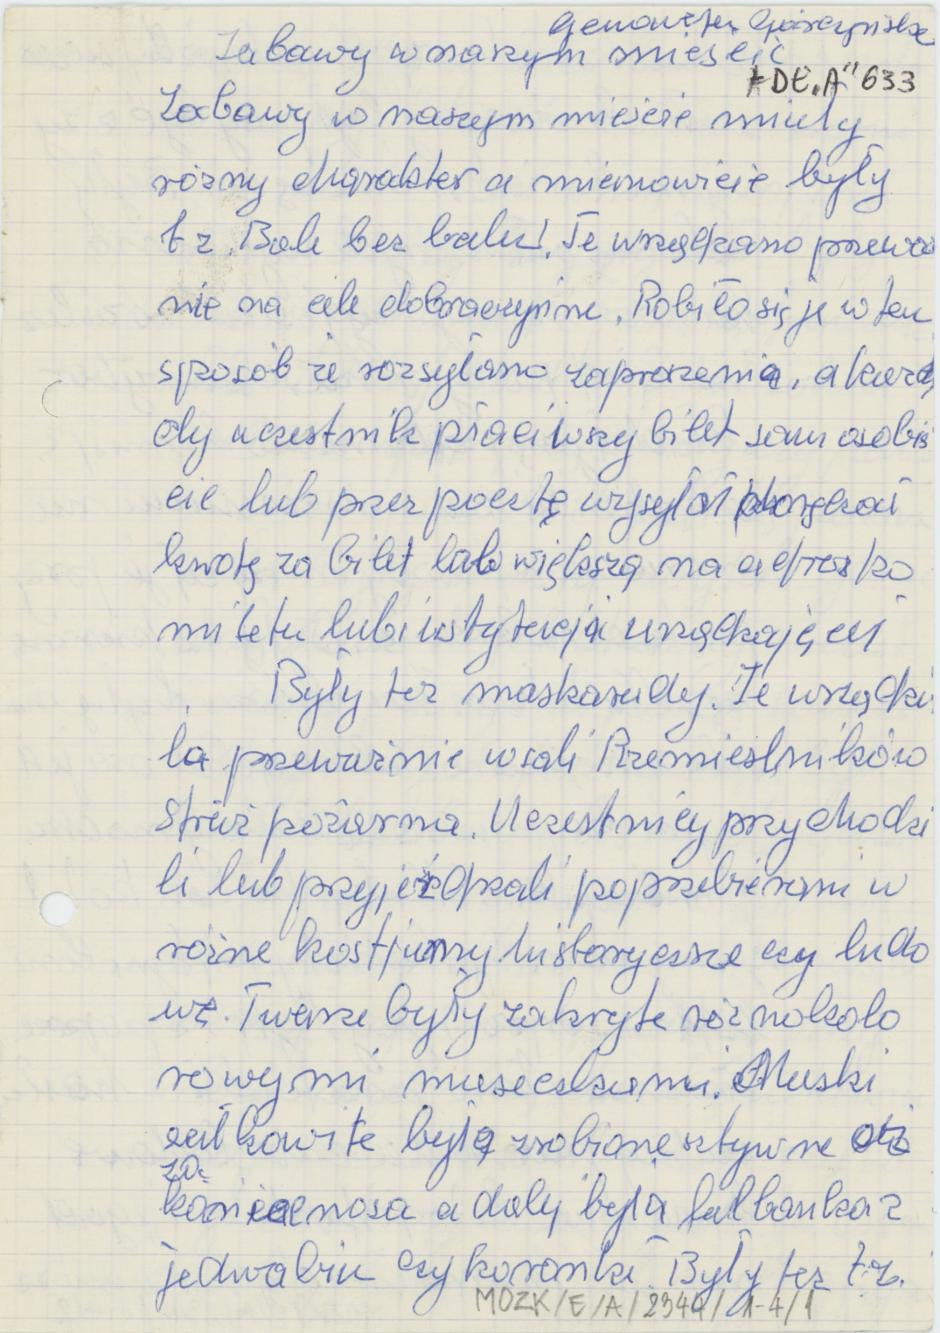 Genowefa Górczyńska
Zabawy w naszym mieście
DE „A" 633
Zabawy w naszym mieście miały
różny charakter a mianowicie były
t z. Bale bez balu! Te urządzano przeważ
nie na cele dobroczynne. Robiło się je w ten
sposób że rozsyłano zaproszenia, a każ
dy uczestnik płaciwszy bilet sam osobiś
cie lub przez pocztę wysyłał
kwotę za bilet lub większą na adres ko
mitetu lub instytucji urządzającej
Były też maskarady. Te urządzi
ła przeważnie w sali Rzemieślników
straż pożarna. Uczestnicy przychodzi
li lub przyjeżdżali poprzebierani w
różne kostjumy historyczne czy ludo
we. Twarze były zakryte różnokolo
rowymi maseczkami. Maski
całkowite były zrobione sztywne do
za
końca nosa a dalej była falbanka z
jedwabiu czy koronki. Były też t.z.
MOZK/E/A/2344/1-4/1